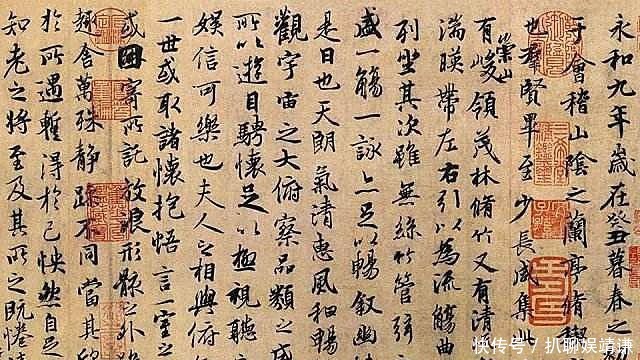 永和九年歲在癸丑暮春之
于會稽山陰之蘭亭脩禊
也羣賢畢至少長咸集此
崇山
有峻領茂林脩竹又有清
湍暎帶左右引以為流觴曲
列坐其次雖無絲竹管弦
盛一觴一詠亦足以暢叙幽
是日也天朗氣清惠風和暢
觀宇宙之大俯察品類之盛
所以遊目騁懷足以極視聽
娛信可樂也夫人之相與俯
一世或取諸懷抱悟言一室之
或因寄所託放浪形骸之外
趣舍萬殊静躁不同當其欣
於所遇蹔得於己怏然自足
知老之將至及其所之既惓
快传号 / 扒聊娱靖谦